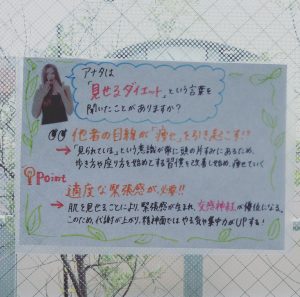 アナタは
「見せるダイエット」という言葉を
聞いたことがありますか?
他者の目線が「痩せ」を引き起こす!?
→「見られている」という意識が常に頭の片すみにあるため、
歩き方や座り方を始めとする習慣を改善し始め、痩せていく
Point
適度な緊張感が必要!!
→ 肌を見せることにより、緊張感が生まれ、交感神経が優位になる。
このため、代謝が上がり、精神面ではやる気や集中力がUPする!